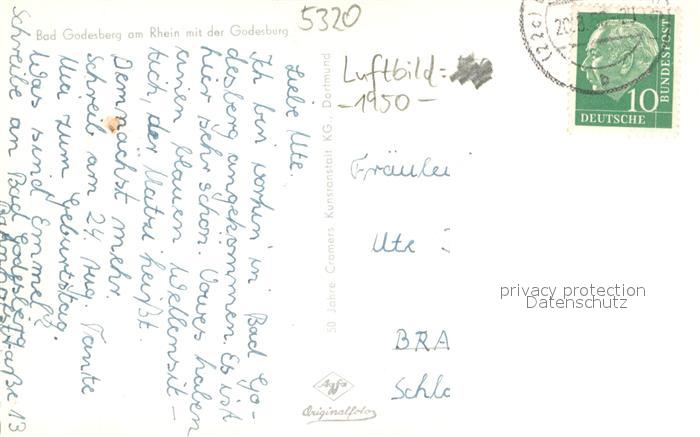 5320
Bad Godesberg am Rhein mit der Godesburg
Liebe Ute.
Ich bin vorhin in Bad Go-
desberg angekommen. Es ist
hier sehr schön. Vowes haben
einen blauen Wellensit-
tich, der Matzi heißt.
Demnächst mehr.
Schreib am 24. Aug. Tante
Mia zum Geburtstag.
Was sind Emmely.
Schreibe an Bad Godesberg
Bahnhofstraße 13
50 Jahre Cramers Kunstanstalt KG., Dortmund
Luftbild:
-1950-
Fräulei
Ute
BRA
Schlo
Agfa
Originalfoto
20.8.
10
DEUTSCHE
BUNDESPOST
privacy protection
Datenschutz